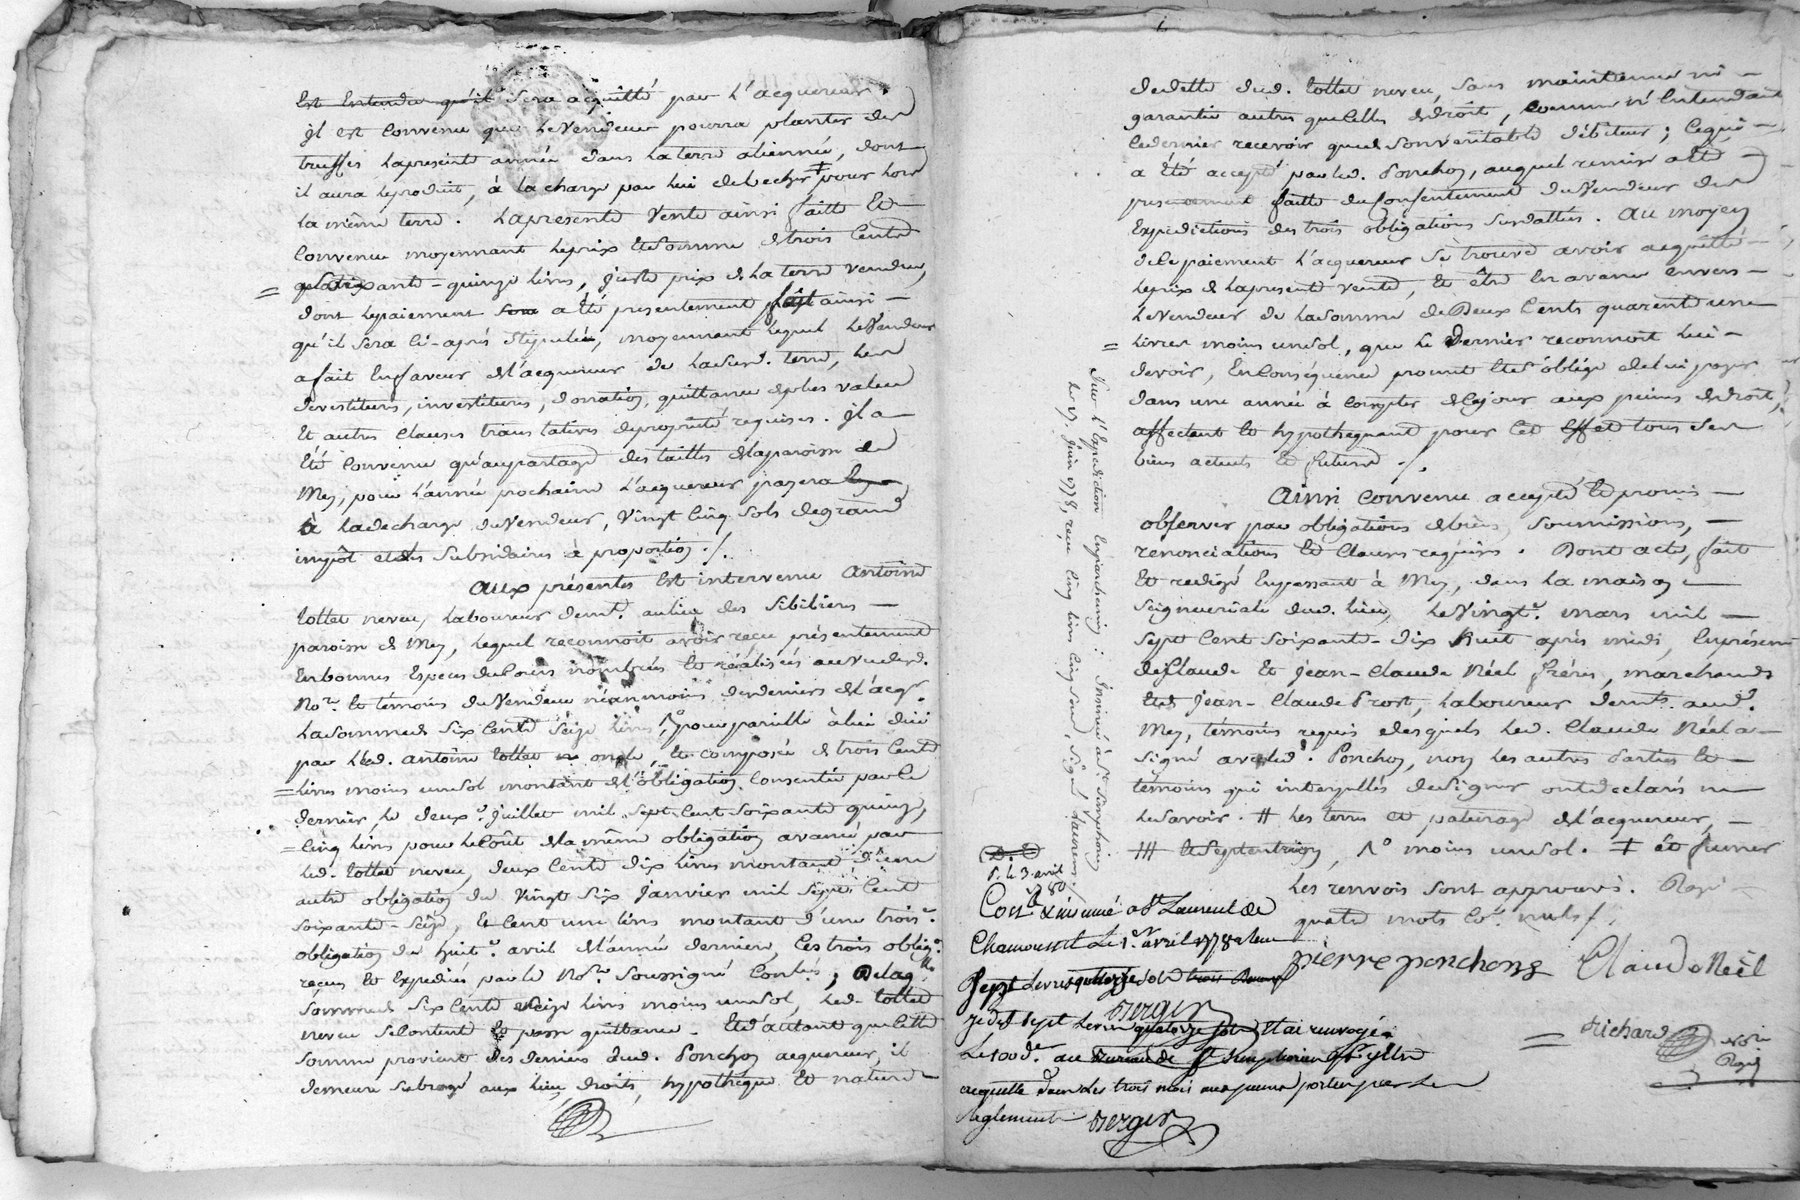 Est Entendu qu'il sera acquitté par l'acquereur.
Il est Convenu que le Vendeur pourra planter des
truffes la presente année dans la terre aliennée, dont
il aura le produit, à la charge par lui de becher ‡ pour lors
la même terre. La presente Vente ainsi faitte Et
Convenue moyennant le prix Et somme de trois Cents
soixante-quinze livres, juste prix de la terre vendue,
dont le paiement sera a été presentement fait ainsi
qu'il sera Ci-après stipulé, moyennant lequel le Vendeur
a fait En faveur de l'acquereur de la susd. terre, les
devestitures, investitures, donation, quittance de plus value
Et autres Clauses translatives de propriété requises. Il a
Eté Convenu qu'au partage des tailles de la paroisse de
Mey, pour l'année prochaine l'acquereur payera
à la decharge du Vendeur, Vingt Cinq sols de grand
impôt et des subsidaires à proportion ./.
Aux présentes Est intervenu Antoine
Collet neveu, laboureur demt. au lieu des Sibiliens
paroisse de Mey, lequel reconnoit avoir reçu présentement
En bonnes Especes de Cours nombrées Et réalisées au vu desd.
No.re Et temoins du Vendeur néanmoins des deniers de l'acqr.
la somme de six Cents seize livres, pour pareille à lui düe
par led. antoine Collet oncle, Et composée de trois Cents
livres moins un sol montant de l'obligation Consentie par le
dernier, le deuxe. Juillet mil sept Cent soixante quinze,
Cinq livres pour le Coût de la même obligation avancé par
led. Collet neveu, deux Cents dix livres montant d'une
autre obligation du Vingt six Janvier mil sept Cent
soixante-seize, Et Cent une livres montant d'une troise.
obligation du huite. avril de l'année derniere, Ces trois obligs.
reçues Et Expediées par le No.re soussigné Contlés.; De laqlle
somme de six Cents seize livres moins un sol, led. Collet
neveu se Contente Et passe quittance. Et d'autant que Cette
somme provient des deniers dud. Ponchon acquereur, il
demeure subrogé aux lieu, droits, hypothèque Et nature
de dette dud. Collet neveu, sans maintenue ni
garantie autres que Celles de droit, Comme n'Entendant
Ce dernier recevoir que de son véritable débiteur; Ce qui
a été accepté par led. Ponchon, auquel remise a été
presentement faitte du Consentement du Vendeur des
Expeditions des trois obligations susdattées. Au moyen
de Ce paiement l'acquereur se trouve avoir acquitté
le prix de la presente Vente, Et être En avance envers
le Vendeur de la somme de Deux Cents quarente une
livres moins un sol, que Ce Dernier reconnoit lui
devoir, En Conséquence promet Et s'oblige de lui payer
dans une année à Compter de Ce jour aux peines de droit,
affectant Et hypothequant pour Cet Effet tous ses
biens actuels Et futurs ./.
Ainsi Convenu accepté Et promis
observer par obligations de biens, soumissions,
renonciations Et Clauses requises. Dont acte, fait
Et redigé En passant à Mey, dans la maison
seigneuriale dud. lieu, le Vingte. mars mil
sept Cent soixante-dix huit après midi, En présence
de Claude Et Jean-Claude Néel freres, marchands
Et de Jean-Claude Prost, laboureur demts. aud.
Mey, témoins requis desquels led. Claude Néel a
signé avec led. Ponchon, non les autres Parties Et
témoins qui interpellés de signer ont declaré ne
le savoir. # les terres et paturage de l'acquereur,
### Et septentrion, 1° moins un sol. ‡ et fumer
les renvois sont approuvés. Rayé
quatre mots Co.e nuls ./.
pierre ponchong Claude Néel
Richard Nore
Royal
Sur l'Expedition En parchemin : Insinué à St. Simphorien
le 17. Juin 1778, reçu Cinq livres Cinq sous, signé Laurens ./.
D. E
P. le 3 avril
1780
Cont.lé & insinué a St Laurent de
Chamousset le 1er avril 1778 reçu
Sept livres quatorze sols
je dis sept livres quatorze sols Et ai renvoyé
Le 100de. au Bureau de St Simphorien
acquitté dans les trois mois aux peines portées par les
Reglements Berger
Berger